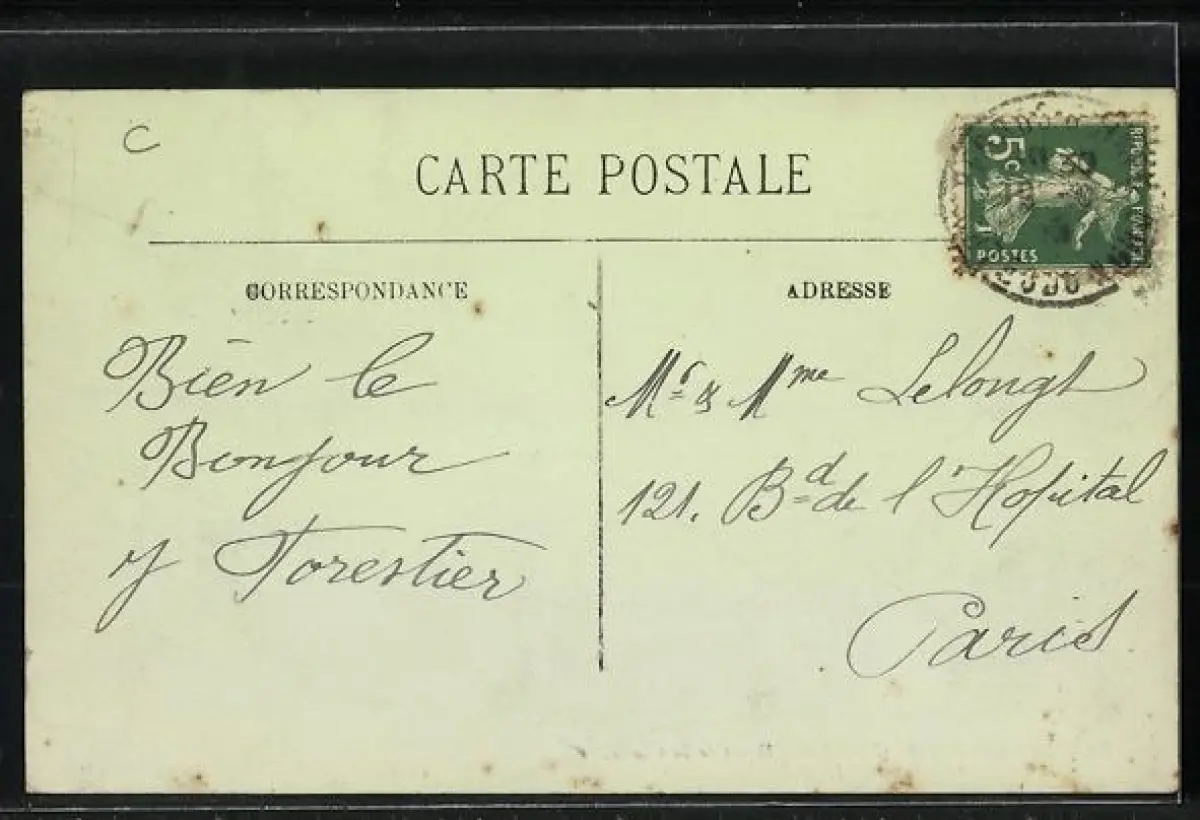 C
CARTE POSTALE
CORRESPONDANCE
Bien le
Bonjour
y Forestier
ADRESSE
Mr & Mme Lelongt
121. Bd de l'Hopital
Paris
5c
POSTES